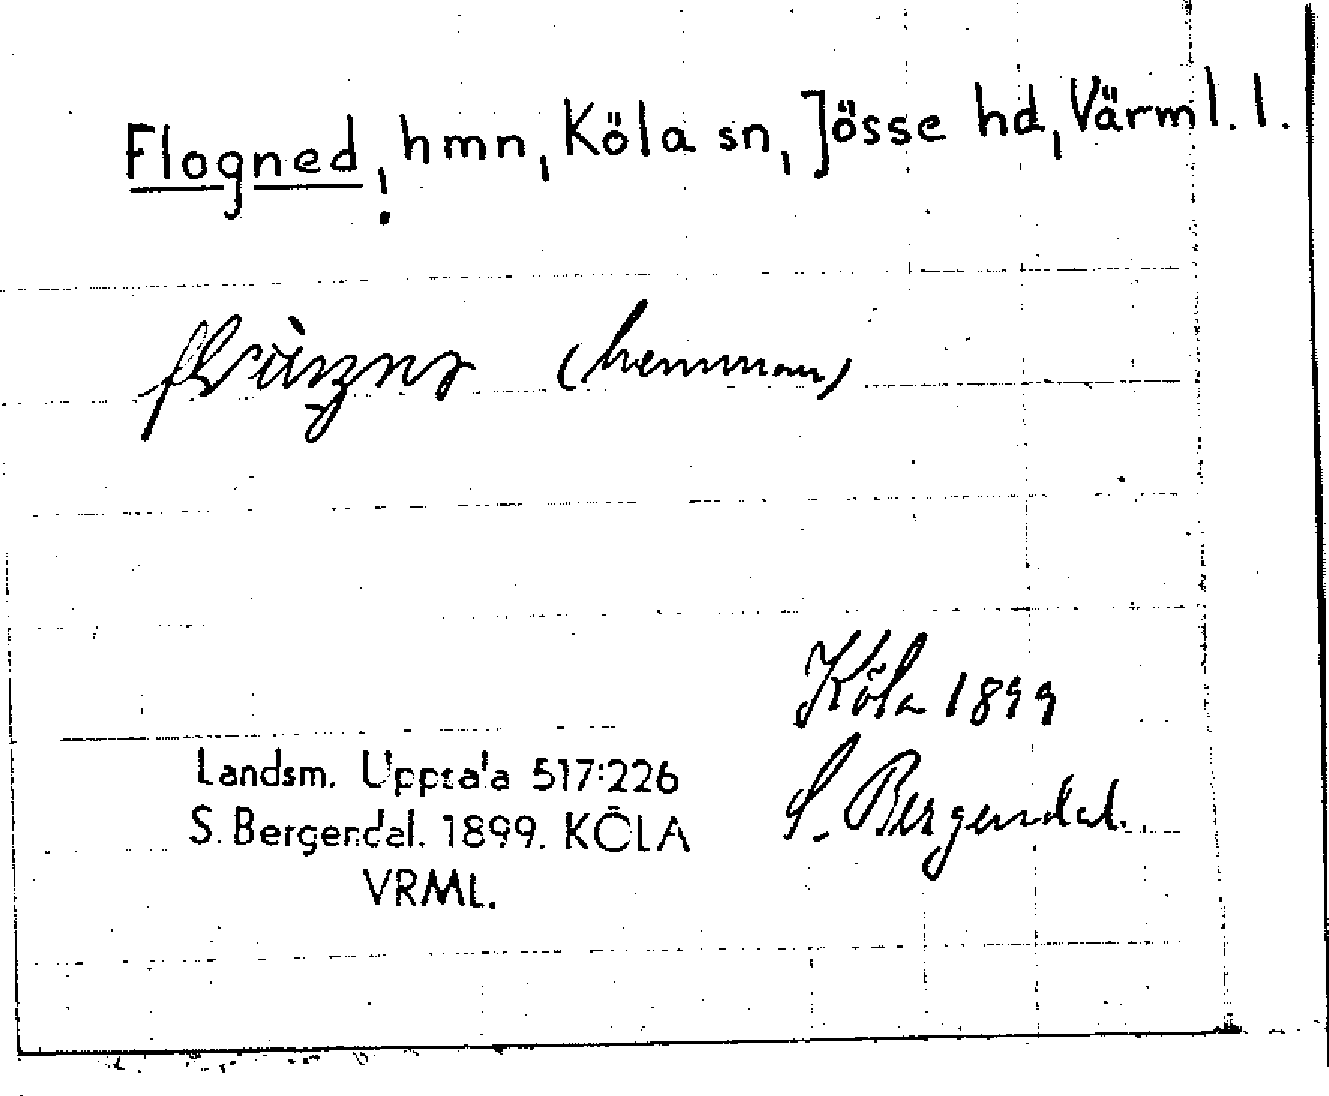 Flogned, hmn, Köla sn, Jösse hd, Värml. l.
(hemman)
Köla 1899
S. Bergendal.
Landsm. Uppsala 517:226
S. Bergendal. 1899. KÖLA
VRML.